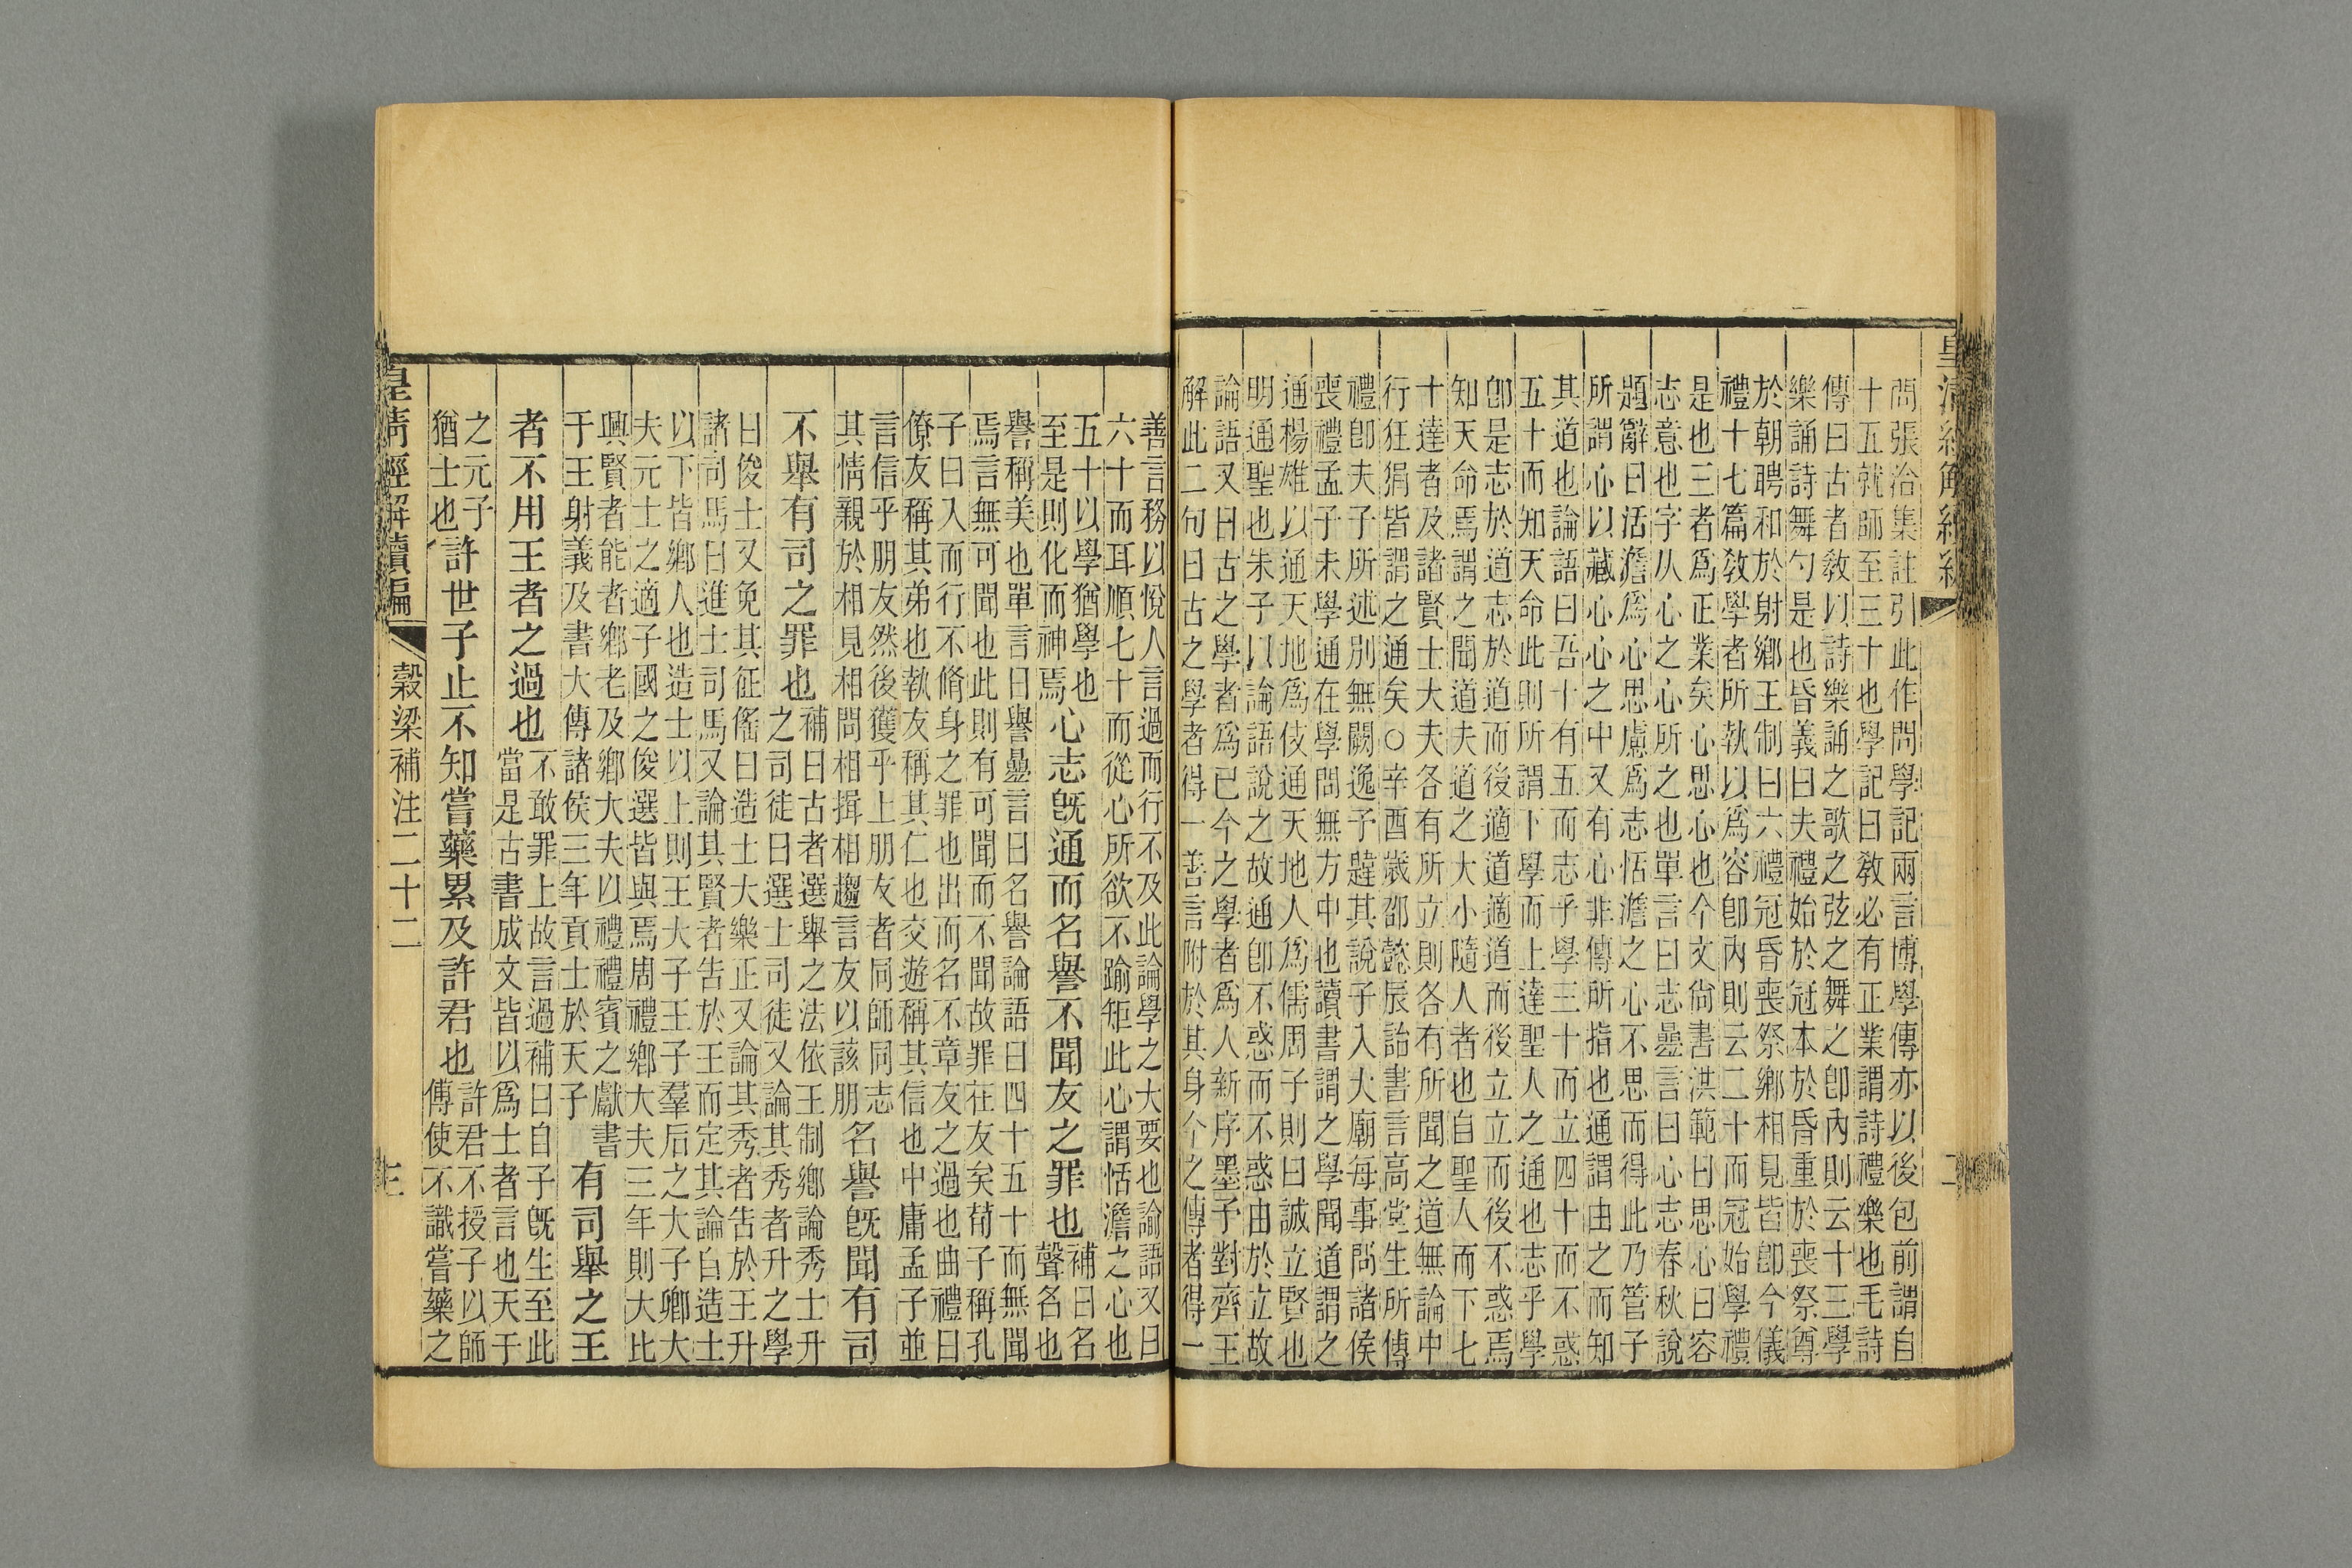 皇清經解續編
問張洽集註引此作問學記兩言博學傳亦以後包前謂自
十五就師至三十也學記曰敎必有正業謂詩禮樂也毛詩
傳曰古者敎以詩樂誦之歌之弦之舞之卽內則云十三學
樂誦詩舞勺是也昏義曰夫禮始於冠本於昏重於喪祭尊
於朝聘和於射鄉王制曰六禮冠昏喪祭鄉相見皆卽今儀
禮十七篇敎學者所執以爲容卽內則云二十而冠始學禮
是也三者爲正業矣心思心也今文尙書洪範曰思心曰容
志意也字从心之心所之也單言曰志㬪言曰心志春秋說
題辭曰活澹爲心思慮爲志恬澹之心不思而得此乃管子
所謂心以藏心心之中又有心非傳所指也通謂由之而知
其道也論語曰吾十有五而志乎學三十而立四十而不惑
五十而知天命此則所謂下學而上達聖人之通也志乎學
卽是志於道志於道而後適道適道而後立立而後不惑焉
知天命焉謂之聞道夫道之大小隨人者也自聖人而下七
十達者及諸賢士大夫各有所立則各有所聞之道無論中
行狂狷皆謂之通矣○辛酉歲邵懿辰詒書言高堂生所傳
禮卽夫子所述別無闕逸予韙其說子入大廟每事問諸侯
喪禮孟子未學通在學問無方中也讀書謂之學聞道謂之
通楊雄以通天地爲伎通天地人爲儒周子則曰誠立賢也
明通聖也朱子以論語說之故通卽不惑而不惑由於立故
論語又曰古之學者爲己今之學者爲人新序墨子對齊王
解此二句曰古之學者得一善言附於其身今之傳者得一
善言務以悅人言過而行不及此論學之大要也論語又曰
六十而耳順七十而從心所欲不踰矩此心謂恬澹之心也
五十以學猶學也
至是則化而神焉
心志旣通而名譽不聞友之罪也
補曰名
聲名也
譽稱美也單言曰譽㬪言曰名譽論語曰四十五十而無聞
焉言無可聞也此則有可聞而不聞故罪在友矣荀子稱孔
子曰入而行不脩身之罪也出而名不章友之過也曲禮曰
僚友稱其弟也執友稱其仁也交遊稱其信也中庸孟子並
言信乎朋友然後獲乎上朋友者同師同志
其情親於相見相問相揖相趨言友以該朋
名譽旣聞有司
不舉有司之罪也
補曰古者選舉之法依王制鄉論秀士升
之司徒曰選士司徒又論其秀者升之學
曰俊士又免其征傜曰造士大樂正又論其秀者告於王升
諸司馬曰進士司馬又論其賢者告於王而定其論自造士
以下皆鄉人也造士以上則王大子王子羣后之大子卿大
夫元士之適子國之俊選皆與焉周禮鄉大夫三年則大比
興賢者能者鄉老及鄉大夫以禮禮賓之獻書
于王射義及書大傳諸侯三年貢士於天子
有司舉之王
者不用王者之過也
不敢罪上故言過補曰自子旣生至此
當是古書成文皆以爲士者言也天于
之元子
猶士也
許世子止不知嘗藥累及許君也
許君不授子以師
傳使不識嘗藥之
皇淸經解續編
穀梁補注二十二
三